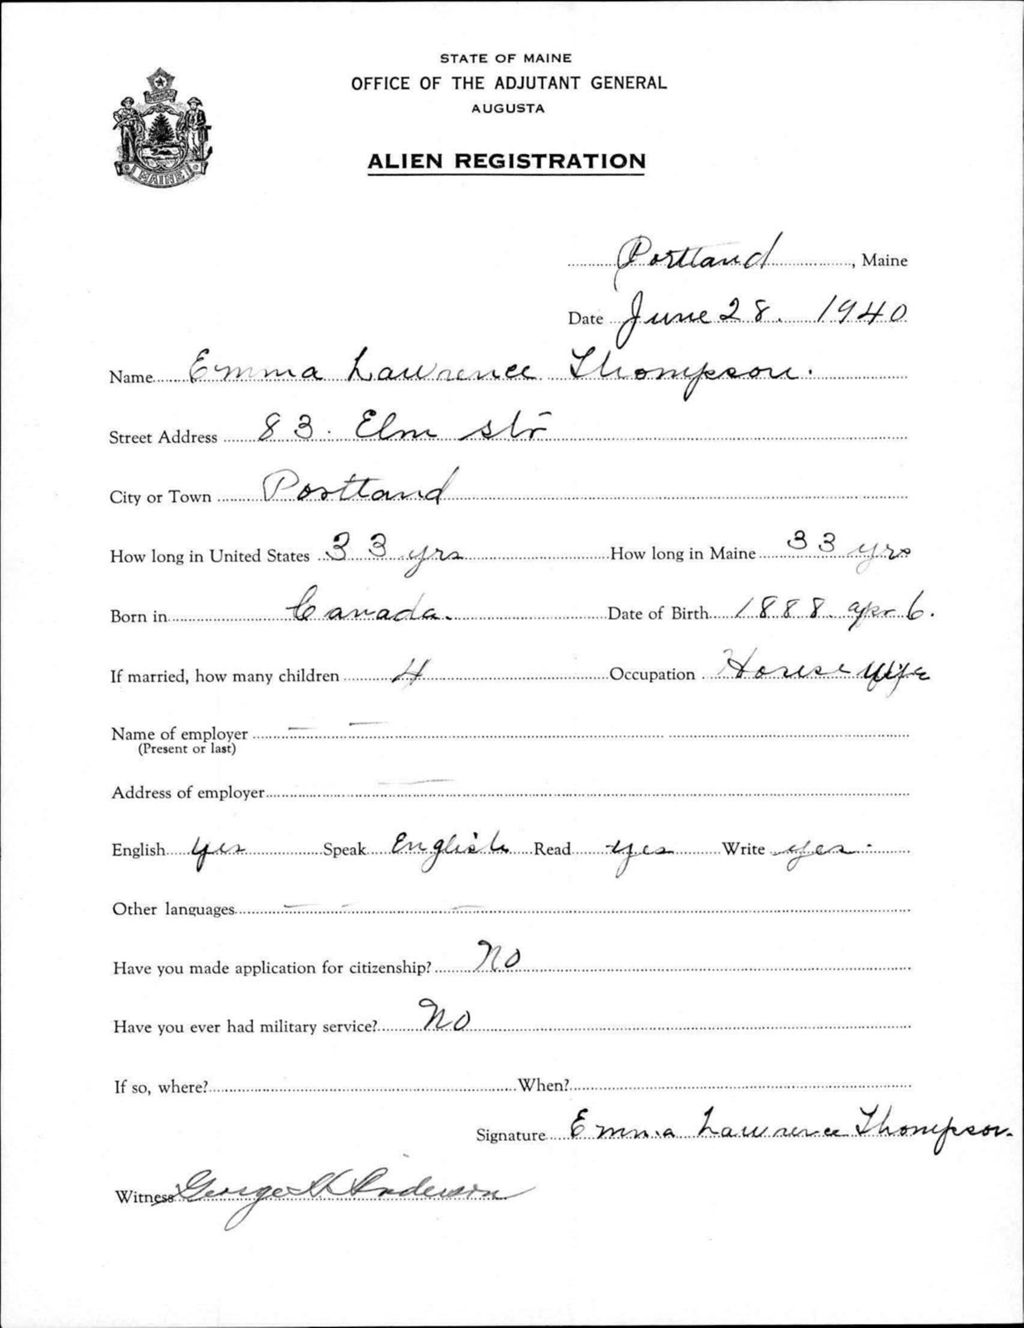 STATE OF MAINE
OFFICE OF THE ADJUTANT GENERAL
AUGUSTA
ALIEN REGISTRATION
MAINE
Portland, Maine
Date June 28. 1940
Name Emma Lawrence Thompson.
Street Address 83. Elm str
City or Town Portland
How long in United States 33 yrs How long in Maine 33 yrs
Born in Canada. Date of Birth 1888 apr 6.
If married, how many children 4 Occupation House wife
Name of employer
(Present or last)
Address of employer
English yes Speak English Read yes Write yes.
Other languages
Have you made application for citizenship? No
Have you ever had military service? No
If so, where? When?
Signature Emma Lawrence Thompson.
Witness George Anderson